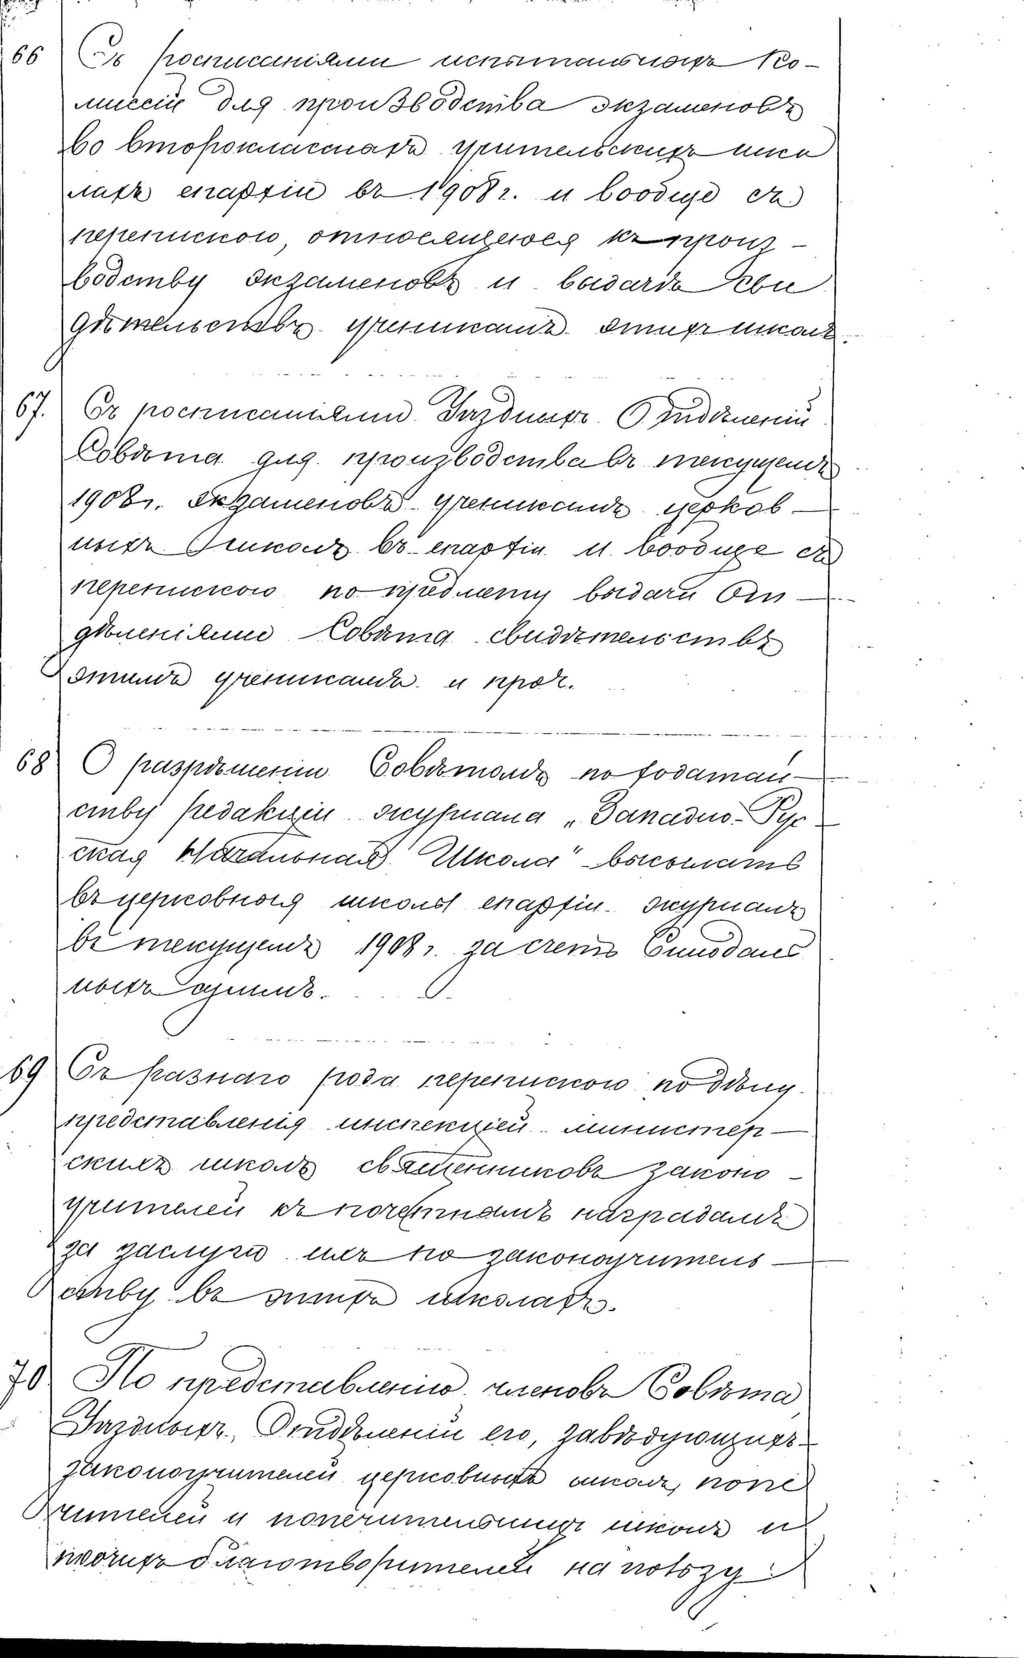 66 Съ росписаніями испытательныхъ Ко-
миссій для производства экзаменовъ
во второклассныхъ учительскихъ шко
лахъ епархіи въ 1908 г. и вообще съ
перепискою, относящеюся къ произ-
водству экзаменовъ и выдачѣ сви
дѣтельствъ ученикамъ этихъ школъ.
67. Съ росписаніями Уѣздныхъ Отдѣленій
Совѣта для производства въ текущемъ
1908 г. экзаменовъ ученикамъ церков-
ныхъ школъ въ епархіи и вообще съ
перепискою по предмету выдачи От-
дѣленіями Совѣта свидѣтельствъ
этимъ ученикамъ и проч.
68 О разрѣшеніи Совѣтомъ по ходатай-
ству редакціи журнала „Западно-Рус-
ская Начальная Школа" высылать
въ церковныя школы епархіи журналъ
въ текущемъ 1908 г. за счетъ Синодаль
ныхъ суммъ.
69 Съ разнаго рода перепискою по дѣлу
представленія инспекціей министер-
скихъ школъ священниковъ законо-
учителей къ почетнымъ наградамъ
за заслуги ихъ по законоучитель-
ству въ этихъ школахъ.
70 По представленію членовъ Совѣта,
Уѣздныхъ Отдѣленій его, завѣдующихъ
законоучителей церковныхъ школъ, попе
чителей и попечительницъ школъ и
прочихъ благотворителей на пользу